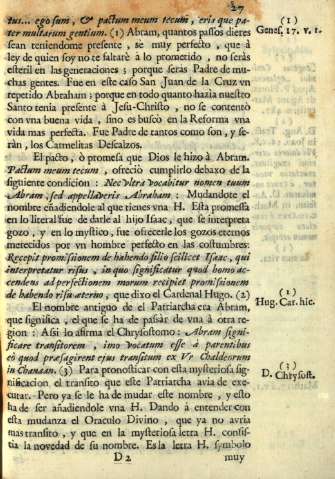 27
tus... ego sum, & pactum meum tecum, eris que pa-
ter multarum gentium. (1) Abram, quantos passos dieres
sean teniendome presente, se muy perfecto, que à
ley de quien soy no te faltarè à lo prometido, no seràs
esteril en las generaciones; porque seras Padre de mu-
chas gentes. Fue en este caso San Juan de la Cruz vn
repetido Abraham: porque en todo quanto hazia nuestro
Santo tenia presente à Jesu-Christo, no se contentò
con vna buena vida, sino es buscò en la Reforma vna
vida mas perfecta. Fue Padre de tantos como son, y se-
ràn, los Carmelitas Descalzos.
El pacto, ò promesa que Dios le hizo à Abram.
Pactum meum tecum, ofreciò cumplirlo debaxo de la
siguiente condicion: Nec vltra vocabitur nomen tuum
Abram, sed appellaveris Abraham: Mudandote el
nombre eñadiendole al que tienes vna H. Esta promessa
en lo literal fue de darle al hijo Isaac, que se interpreta
gozo, y en lo mystico, fue ofrecerle los gozos eternos
merecidos por vn hombre perfecto en las costumbres:
Recepit promissionem de habendo filio scilicet Isaac, qui
interpretatur risus, in quo significatur quod homo ac-
cendens ad perfectionem morum recipiet promissionem
de habendo risu æterno, que dixo el Cardenal Hugo. (2)
El nombre antiguo de el Patriarcha era Abram,
que significa, el que se ha de passar de vna à otra re-
gion: Assi lo afirma el Chrysostomo: Abram signi-
ficare transitorem, imo vocatum esse à parentibus
eò quod præsagirent ejus transitum ex Vr Chaldeorum
in Chanaam. (3) Para pronosticar con esta mysteriosa sig-
nificacion el transito que este Patriarcha avia de exe-
cutar. Pero ya se le ha de mudar este nombre, y esto
ha de ser añadiendole vna H. Dando à entender con
esta mudanza el Oraculo Divino, que ya no avria
mas transito, y que en la mysteriosa letra H. consis-
tia la novedad de su nombre. Es la letra H. symbolo
D 2 muy
(1)
Genes. 17. v. 1.
(1)
Hug. Car. hic.
(3)
D. Chrysost.